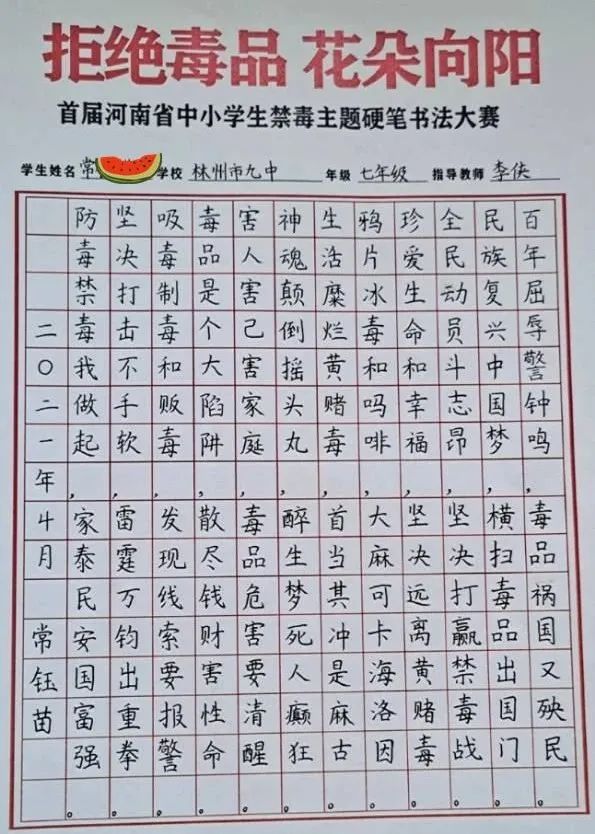 拒绝毒品 花朵向阳
首届河南省中小学生禁毒主题硬笔书法大赛
学生姓名 常 学校 林州市九中 年级 七年级 指导教师 李侠
百年屈辱警钟鸣，毒品祸国又殃民。
民族复兴中国梦，横扫毒品出国门。
全民动员斗志昂，坚决打赢禁毒战。
珍爱生命和幸福，坚决远离黄赌毒。
鸦片冰毒和吗啡，大麻可卡海洛因。
生活糜烂黄赌毒，首当其冲是麻古。
神魂颠倒摇头丸，醉生梦死人癫狂。
害人害己害家庭，毒品危害要清醒。
毒品是个大陷阱，散尽钱财害性命。
吸毒制毒和贩毒，发现线索要报警。
坚决打击不手软，雷霆万钧出重拳。
防毒禁毒我做起，家泰民安国富强。
二〇二一年4月 常钰苗